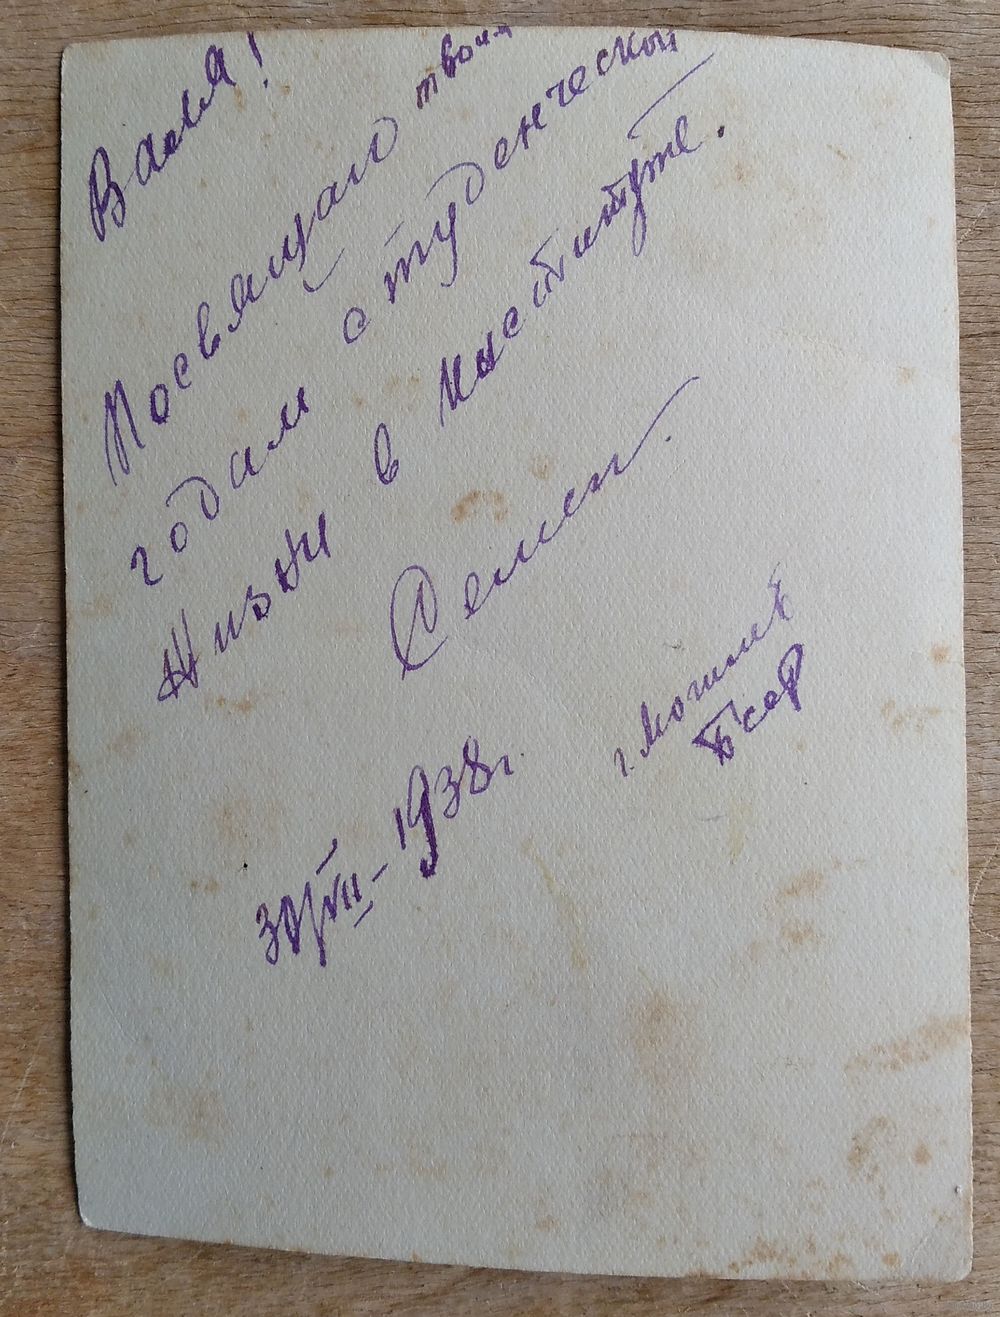 Вася!
Посвящаю твоим
годам студенческой
жизни в институте.
Семен.
30/VII-1938г.
г. Могилев
БССР